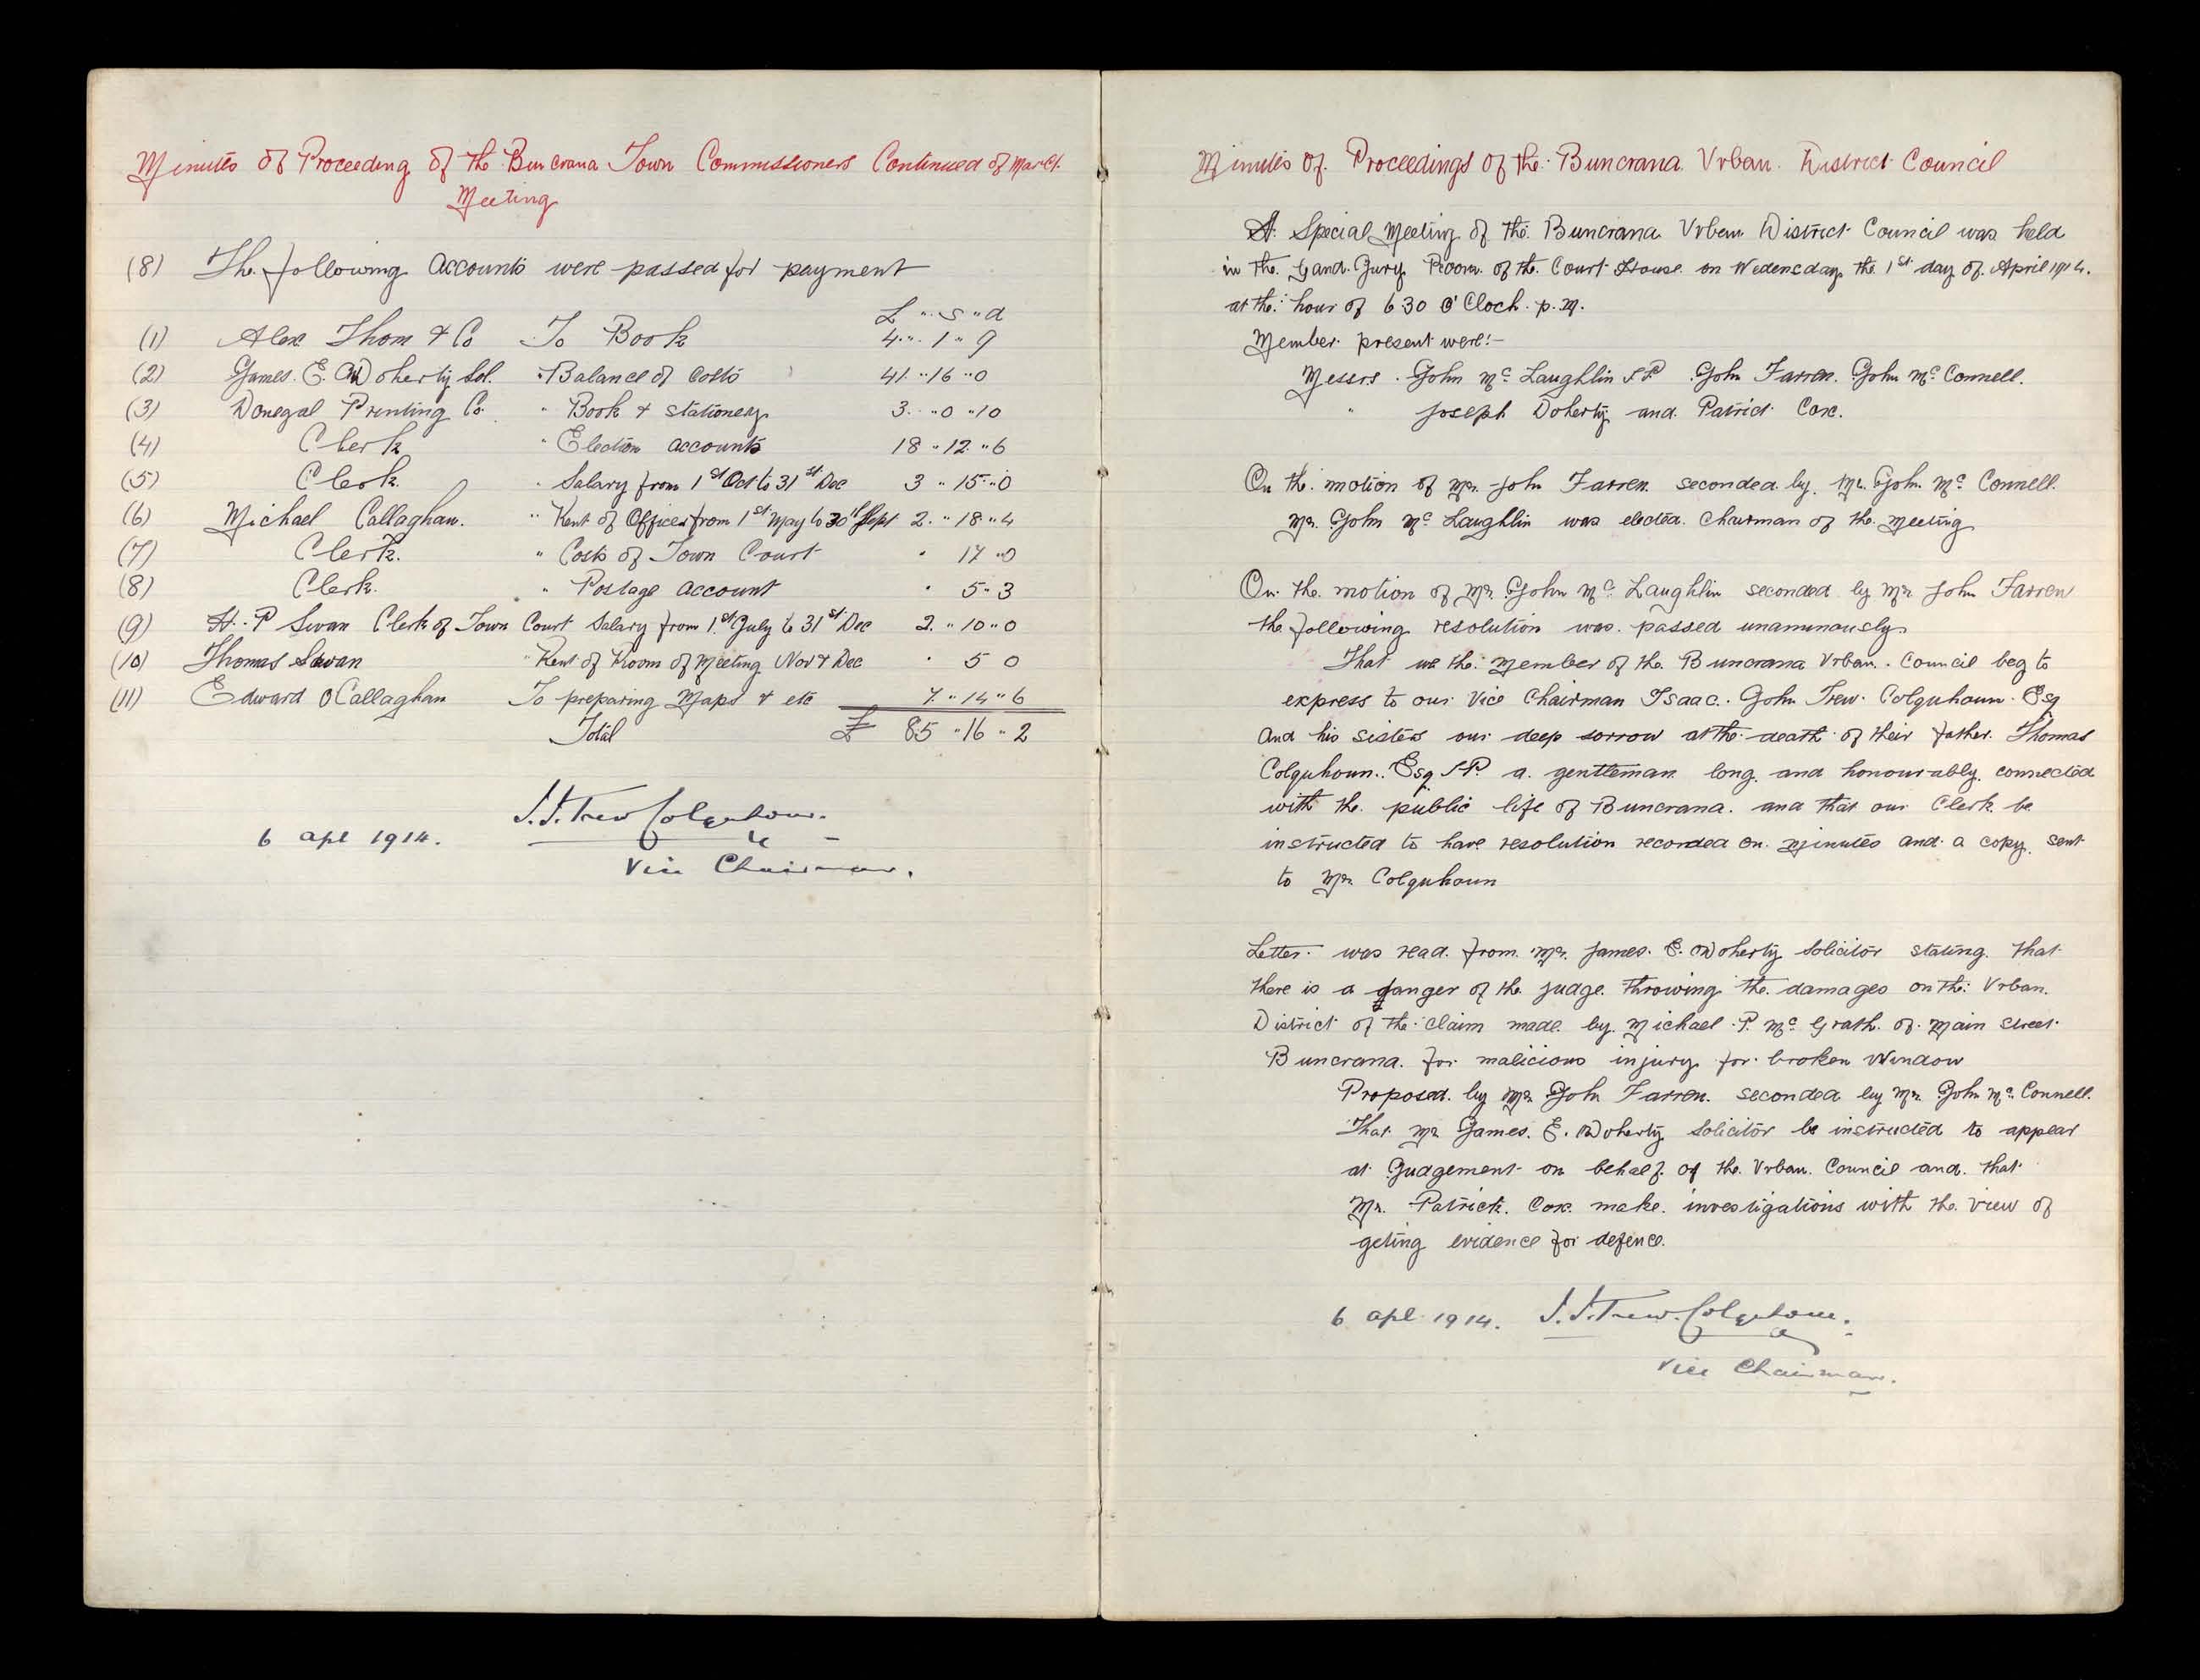 Minutes of Proceeding of the Buncrana Town Commissioners Continued of March
Meeting
(8) The following Accounts were passed for payment
£ " S " d
(1) Alex Thom & Co To Book 4 " 1 " 9
(2) James. E. O'Doherty Sol. " Balance of Costs 41 " 16 " 0
(3) Donegal Printing Co. " Book & stationery 3 " 0 " 10
(4) Clerk " Election accounts 18 " 12 " 6
(5) Clerk " Salary from 1st Oct to 31st Dec 3 " 15 " 0
(6) Michael Callaghan. " Rent of Offices from 1st May to 30th Sept 2 " 18 " 4
(7) Clerk. " Costs of Town Court " 17 " 0
(8) Clerk. " Postage account " 5 " 3
(9) H. P Swan Clerk of Town Court Salary from 1st July to 31st Dec 2 " 10 " 0
(10) Thomas Swan " Rent of Room of Meeting Nov & Dec " 5 0
(11) Edward O Callaghan To preparing Maps & etc 7 " 14 " 6
Total £ 85 " 16 " 2
I. J. Trew Colquhoun.
6 Apl 1914.
Vice Chairman.
Minutes of Proceedings of the Buncrana Urban District Council
A Special Meeting of the Buncrana Urban District Council was held
in the Gand Jury Room of the Court House on Wedensday the 1st day of April 1914.
at the hour of 6.30 O'Clock p.m.
Member present were:-
Messrs. John Mc Laughlin J.P John Farren. John Mc Connell.
" Joseph Doherty and Patrick Cox.
On the motion of Mr. John Farren seconded by Mr. John Mc Connell.
Mr. John Mc Laughlin was elected Chairman of the Meeting
On the motion of Mr John Mc Laughlin seconded by Mr John Farren
the following resolution was passed unanimously
That we the Member of the Buncrana Urban Council beg to
express to our Vice Chairman Isaac John Trew Colquhoun Esq
And his sisters our deep sorrow at the death of their father Thomas
Colquhoun. Esq J.P. a gentleman long and honourably connected
with the public life of Buncrana. and that our Clerk be
instructed to have resolution recorded on Minutes and a copy sent
to Mr Colquhoun
Letter was read from Mr. James. E. O'Doherty Solicitor stating that
there is a danger of the Judge throwing the damages on the Urban
District of the claim made by Michael P. Mc Grath of Main Street
Buncrana. for malicious injury for broken Window
Proposed by Mr John Farren. seconded by Mr John Mc Connell.
That Mr James. E. O'Doherty Solicitor be instructed to appear
at Judgement on behalf of the Urban Council and that
Mr. Patrick Cox make investigations with the view of
geting evidence for defence.
6 Apl 1914. I. J. Trew. Colquhoun.
Vice Chairman.